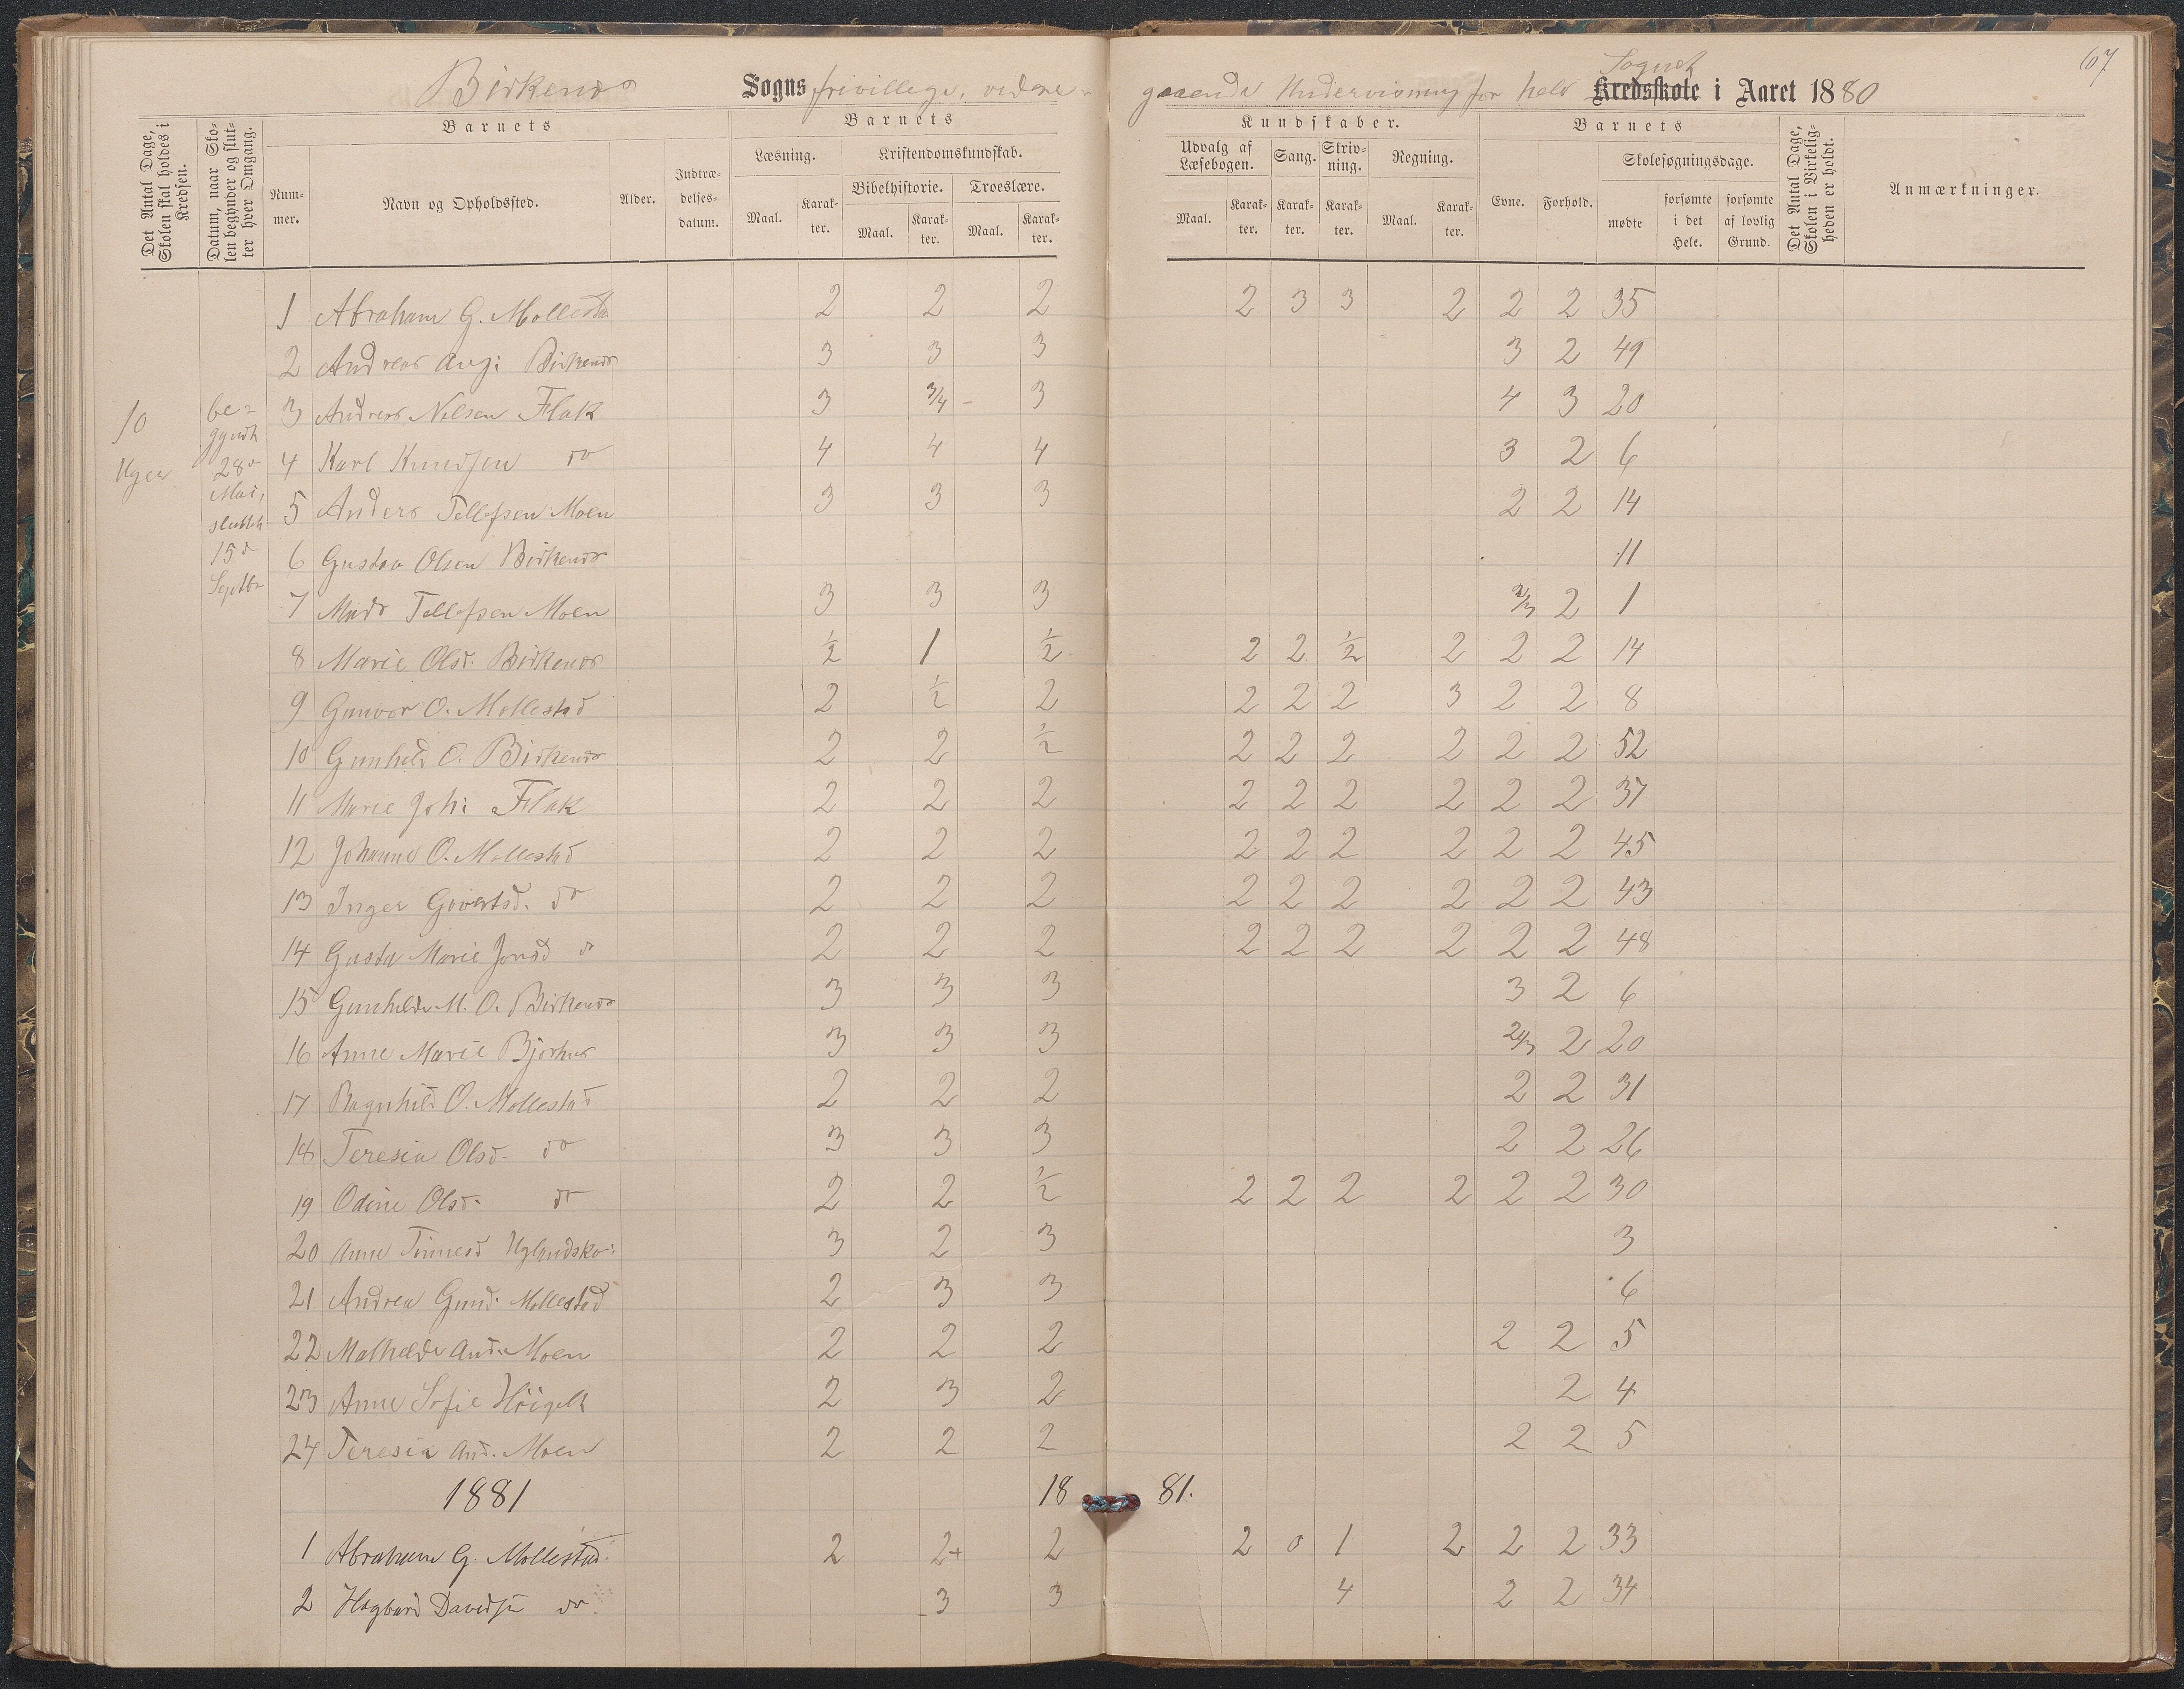 67
Birkenes Sogns frivillige, videre-
gaaende Undervisning for hele Sognet Kredsskole i Aaret 1880
Det Antal Dage, Skolen skal holdes i Kredsen.
Datum, naar Skolen begynder og slutter hver Omgang.
Barnets
Nummer.
Navn og Opholdssted.
Alder.
Indtrædelsesdatum.
Barnets
Læsning.
Maal.
Karakter.
Kristendomskundskab.
Bibelhistorie.
Maal.
Karakter.
Troeslære.
Maal.
Karakter.
Kundskaber.
Udvalg af Læsebogen.
Maal.
Karakter.
Sang.
Karakter.
Skrivning.
Karakter.
Regning.
Maal.
Karakter.
Barnets
Evne.
Forhold.
Skolesøgningsdage.
mødte
forsømte i det Hele.
forsømte af lovlig Grund.
Det Antal Dage, Skolen i Virkeligheden er holdt.
Anmærkninger.
10
Uger
be-
gyndt
28de
Mai,
sluttet
15de
Septbr
1 Abraham G. Mollestad 2 2 2 2 3 3 2 2 2 35
2 Andreas Aug: Birkenes 3 3 3 3 2 49
3 Andreas Nelsen Flak 3 3/4 3 4 3 20
4 Karl Knudsen do 4 4 4 3 2 6
5 Anders Tellefsen Moen 3 3 3 2 2 14
6 Gustav Olsen Birkenes 11
7 Mads Tellefsen Moen 3 3 3 2/3 2 1
8 Marie Olsd. Birkenes 1/2 1 1/2 2 2 1/2 2 2 2 14
9 Gunvor O. Mollestad 2 1/2 2 2 2 2 3 2 2 8
10 Gunhild O. Birkenes 2 2 1/2 2 2 2 2 2 2 52
11 Marie Joh: Flak 2 2 2 2 2 2 2 2 2 37
12 Johanne O. Mollestad 2 2 2 2 2 2 2 2 2 45
13 Inger Govertsd. do 2 2 2 2 2 2 2 2 2 43
14 Gusta Marie Jonsd do 2 2 2 2 2 2 2 2 2 48
15 Gunhilde M. O. Birkenes 3 3 3 3 2 6
16 Anne Marie Bjorhus 3 3 3 2/3 2 20
17 Ragnhild O. Mollestad 2 2 2 2 2 31
18 Teresia Olsd. do 3 3 3 2 2 26
19 Odine Olsd. do 2 2 1/2 2 2 2 2 2 2 30
20 Anne Tinnesd Uglandskr: 3 2 3 3
21 Andrea Gund. Mollestad 2 3 3 6
22 Mathilde And. Moen 2 2 2 2 2 5
23 Anne Sofie 2 3 2 2 4
24 Teresia And. Moen 2 2 2 2 2 5
1881 1881.
1 Abraham G. Mollestad. 2 2+ 2 2 0 1 2 2 2 33
2 Hagbard Davidsen do. 3 3 4 2 2 34